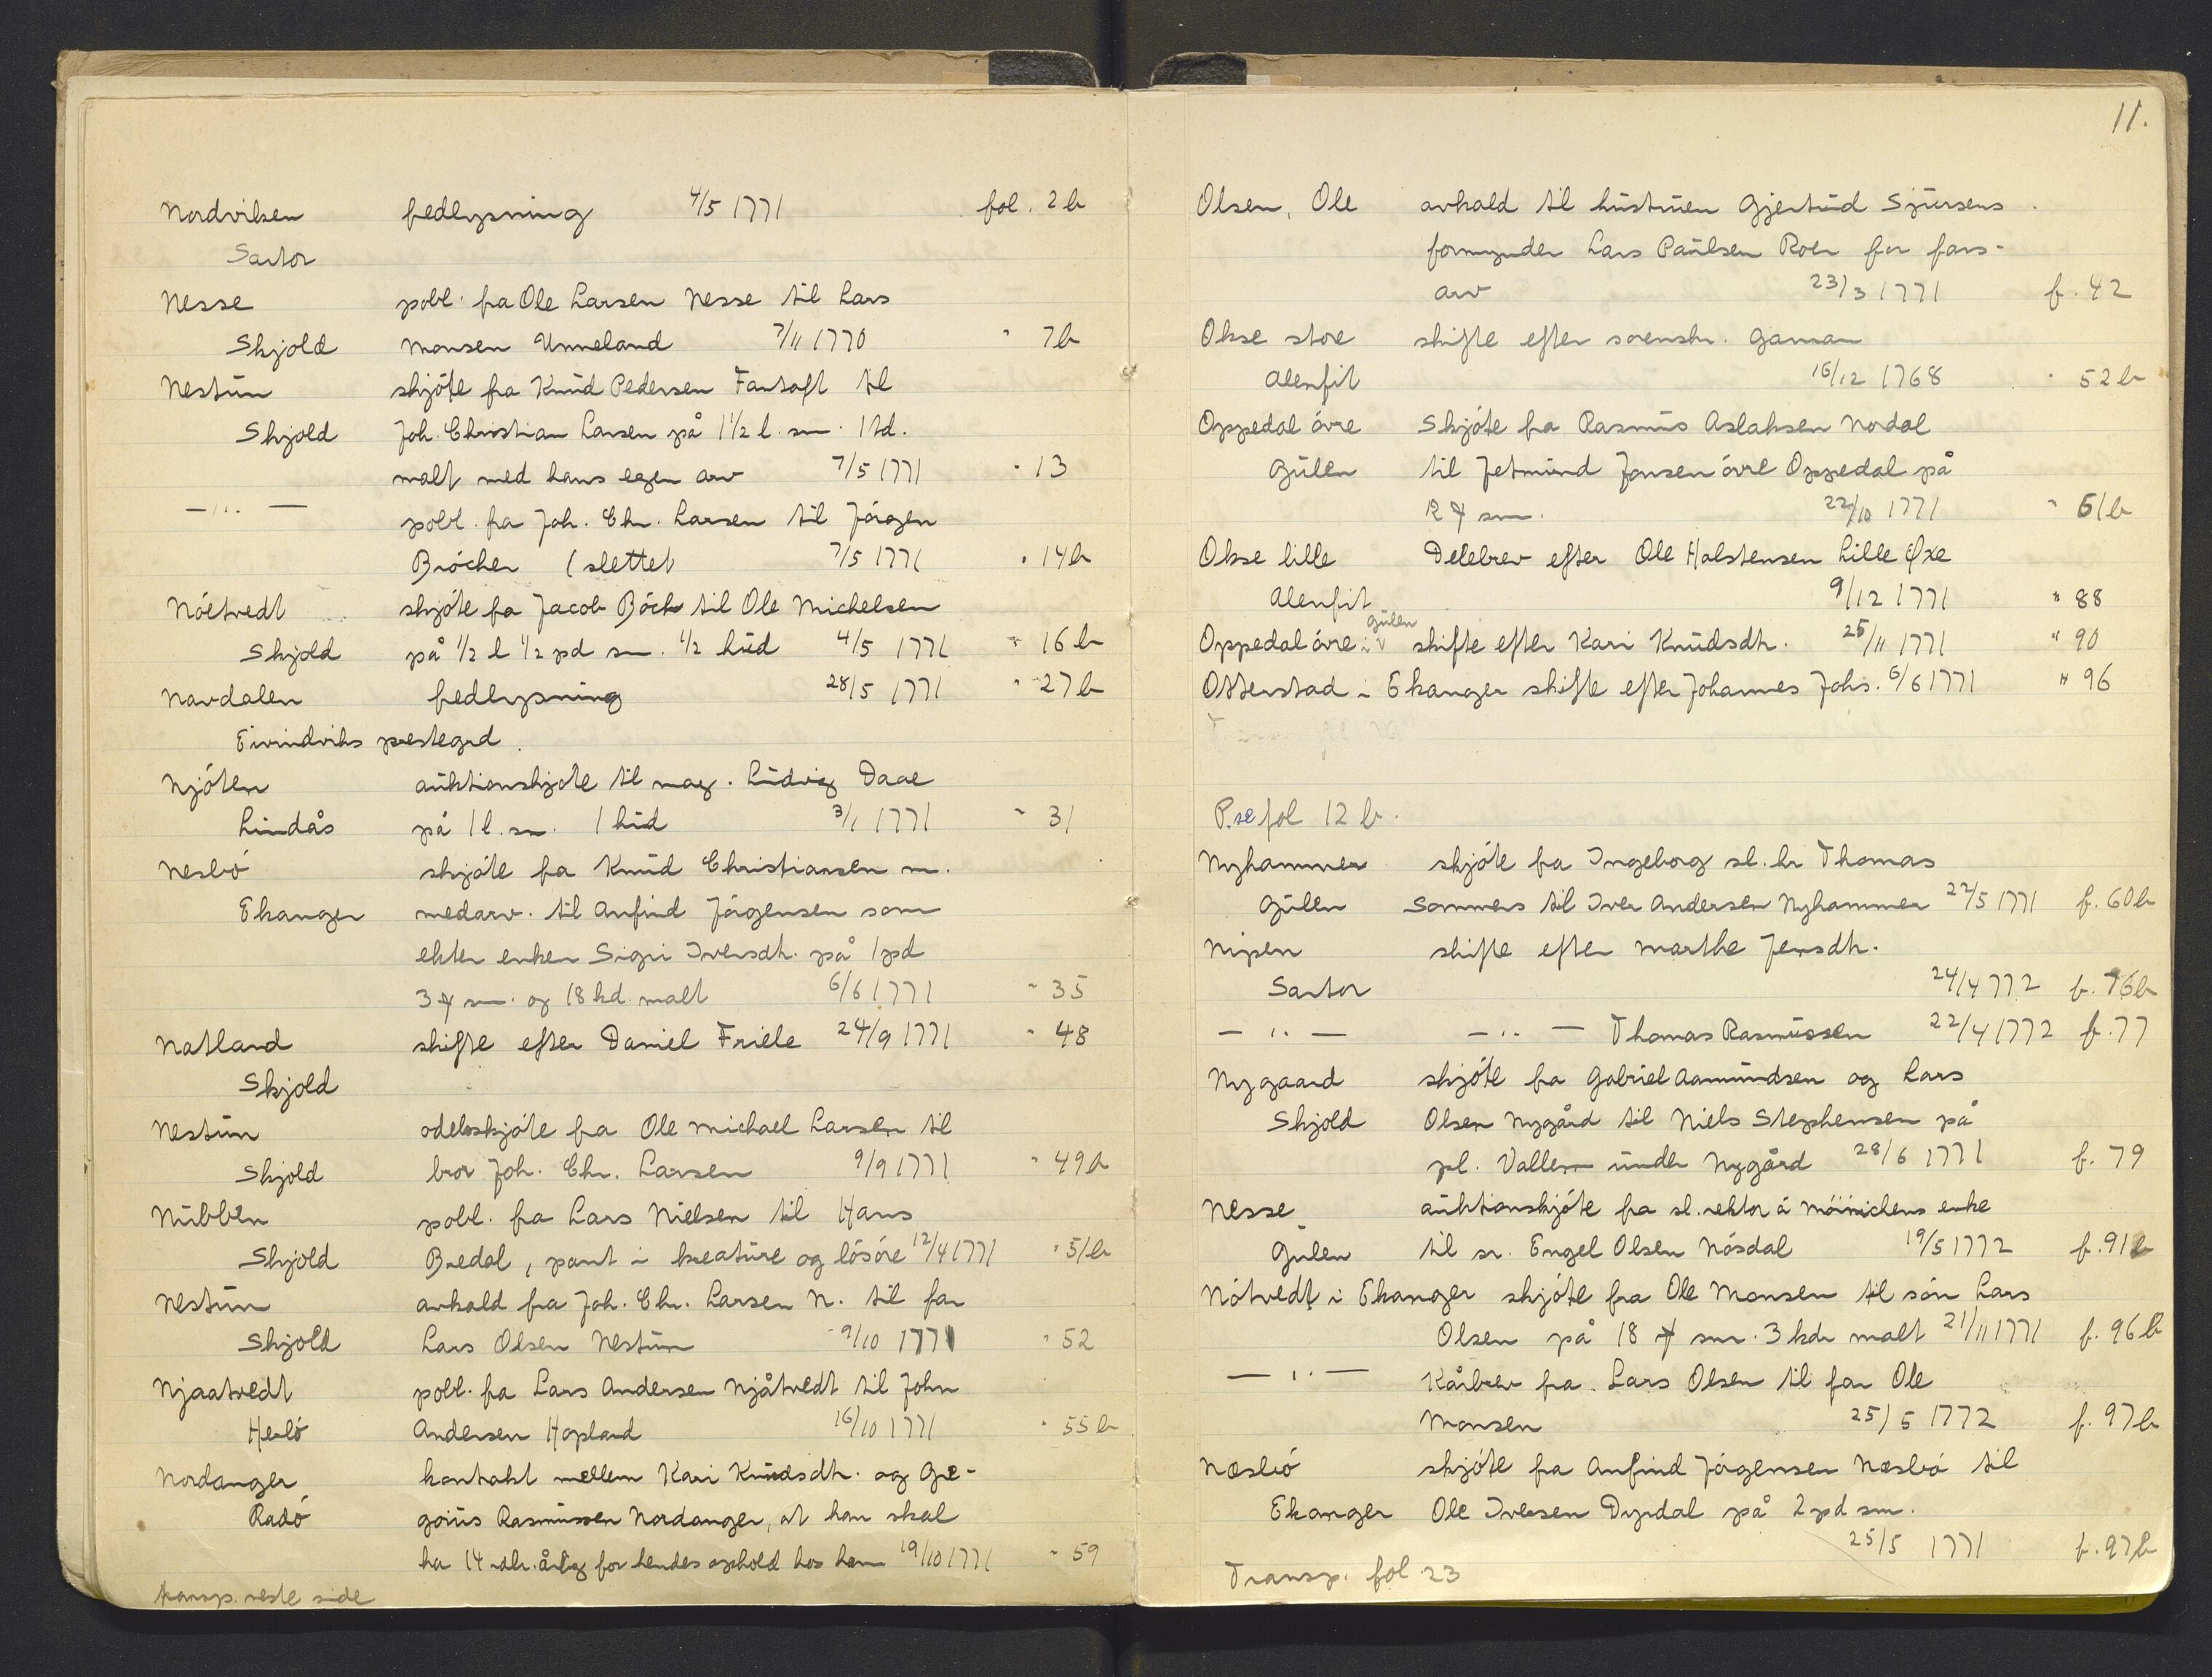 Nordviksen fredlysning 4/5 1771 fol. 2b
Sartor
Nesse pobl. fra Ole Larsen Nesse til Lars
Skjold Monsen Unneland 7/11 1770 " 7b
Nestun skjöte fra Knud Pedersen Fantoft til
Skjold Joh. Christian Larsen på 1 1/2 l. sm. 1 td.
malt med hans egen arv 7/5 1771 " 13
— " — pobl. fra Joh. Chr. Larsen til Jörgen
Bröcher (slettet 7/5 1771 " 14b
Nöetvedt skjöte fra Jacob Böck til Ole Michelsen
Skjold på 1/2 l 1/2 pd sm. 1/2 hud 4/5 1771 " 16b
Navdalen fredlysning 28/5 1771 " 27b
Eivindviks prestegrd.
Njöten auktionskjøte til mag. Ludvig Daae
Lindås på 1 l. sm. 1 hud 3/1 1771 " 31
Nesbö skjöte fra Knud Christiansen m.
Ekanger medarv. til Anfind Jörgensen som
ekter enken Sigri Iversdtr. på 1 pd
3 sm. og 18 kd. malt 6/6 1771 " 35
Natland skifte efter Daniel Friele 24/9 1771 " 48
Skjold
Nestun odelsskjöte fra Ole Michael Larsen til
Skjold bror Joh. Chr. Larsen 9/9 1771 " 49b
Nubben pobl. fra Lars Nielsen til Hans
Skjold Bredal, pant i kreature og lösöre 12/4 1771 " 51b
Nestun avkald fra Joh. Chr. Larsen N. til far
Skjold Lars Olsen Nestun 9/10 1771 " 52
Njaatvedt pobl. fra Lars Andersen Njåtvedt til John
Herlö Andersen Hopland 16/10 1771 " 55b
Nordanger kontrakt mellem Kari Knudsdtr. og Gre-
Radö goius Rasmussen Nordanger, at han skal
ha 14 rdlr. årlig for hendes ophold hos ham 19/10 1771 " 59
transp. neste side
11.
Olsen, Ole avkald til hustruen Gjertrud Sjursens
formynder Lars Paulsen Roen for fars-
arv 23/3 1771 f. 42
Okse store skifte efter sorenskr. Garman
Alenfit 16/12 1768 " 52b
Oppedal övre Skjöte fra Rasmus Aslaksen Nordal
Gulen til Jetmund Jonsen övre Oppedal på
12 sm. 22/10 1771 " 61b
Okse lille Delebrev efter Ole Halstensen Lille Oxe
Alenfit 9/12 1771 " 88
Oppedal övre i Gulen skifte efter Kari Knudsdtr. 25/11 1771 " 90
Otterstad i Ekanger skifte efter Johannes Johs. 6/6 1771 " 96
P. se fol 12 b.
Nyhammer skjöte fra Ingeborg sl. hr Thomas
Gulen Sommers til Iver Andersen Nyhammer 22/5 1771 f. 60b
Nipen skifte efter Marthe Jensdtr.
Sartor 24/4 1772 f. 76b
— " — — " — Thomas Rasmussen 22/4 1772 f. 77
Nygaard skjöte fra Gabriel Aamundsen og Lars
Skjold Olsen Nygård til Niels Stephensen på
pl. Vallen under Nygård 28/6 1771 f. 79
Nesse auktionskjöte fra sl. rektor á Möinichens enke
Gulen til sr. Engel Olsen Nösdal 19/5 1772 f. 91b
Nötvedt i Ekanger skjöte fra Ole Monsen til sön Lars
Olsen på 18 sm. 3 kdr malt 21/11 1771 f. 96b
— " — Kårbrev fra Lars Olsen til far Ole
Monsen 25/5 1772 f. 97b
Næsbö skjöte fra Anfind Jörgensen Næsbö til
Ekanger Ole Iversen Dyrdal på 2 pd sm.
25/5 1771 f. 97b
Transp. fol 23